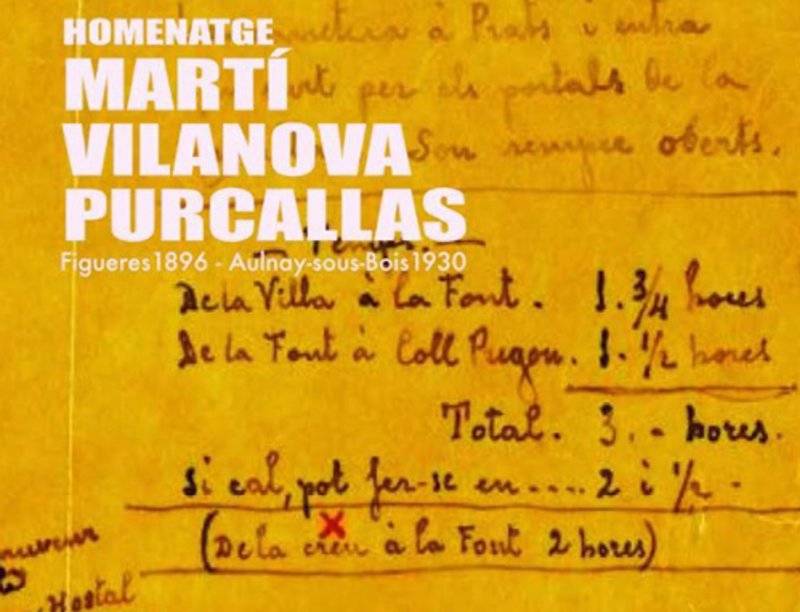 HOMENATGE
MARTÍ
VILANOVA
PURCALLAS
Figueres1896 - Aulnay-sous-Bois1930
à Prats i entra
per els portals de la
Son sempre oberts.
- Temps. -
De la Villa à la Font. 1. 3/4 hores
De la Font à Coll Pugou. 1. 1/2 hores
Total. 3. - hores.
Si cal, pot fer-se en.... 2 i 1/2 -
(De la creu à la Font 2 hores)
Hostal